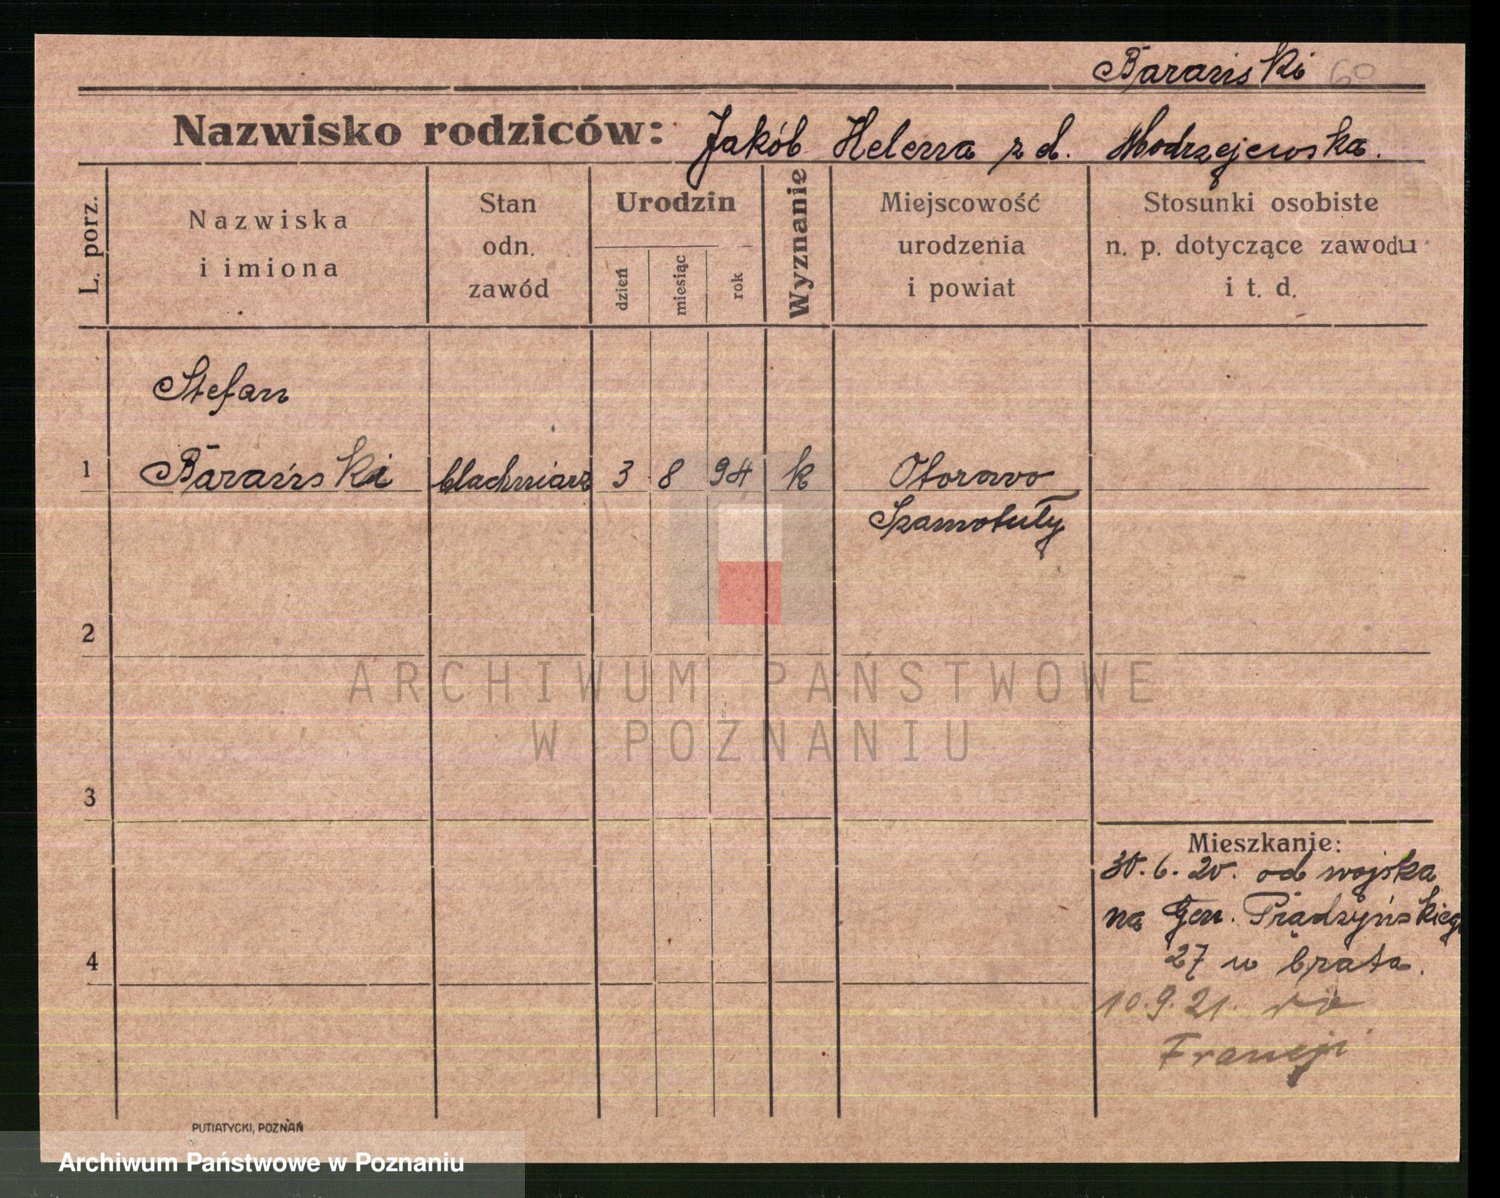 Barański 60
Nazwisko rodziców: Jakób Helena z d. Modrzejewska.
L. porz.
Nazwiska
i imiona
Stan
odn.
zawód
Urodzin
dzień
miesiąc
rok
Wyznanie
Miejscowość
urodzenia
i powiat
Stosunki osobiste
n. p. dotyczące zawodu
i t. d.
Stefan
1 Barański blachniarz 3 8 94 k Otorowo
Szamotuły
2
3
4
Mieszkanie:
30. 6. 20. od wojska
na Gen. Prądzyńskiego
27 u brata.
10.9.21. do
Francji
PUTIATYCKI, POZNAŃ
ARCHIWUM PAŃSTWOWE
W POZNANIU
Archiwum Państwowe w Poznaniu